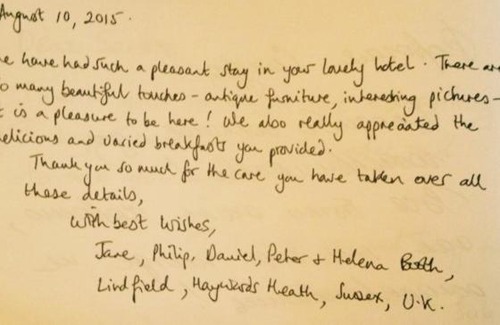 August 10, 2015.
e have had such a pleasant stay in your lovely hotel. There are
o many beautiful touches - antique furniture, interesting pictures -
t is a pleasure to be here! We also really appreciated the
elicious and varied breakfasts you provided.
Thank you so much for the care you have taken over all
these details,
With best wishes,
Jane, Philip, Daniel, Peter + Helena
Lindfield, Haywards Heath, Sussex, U.K.